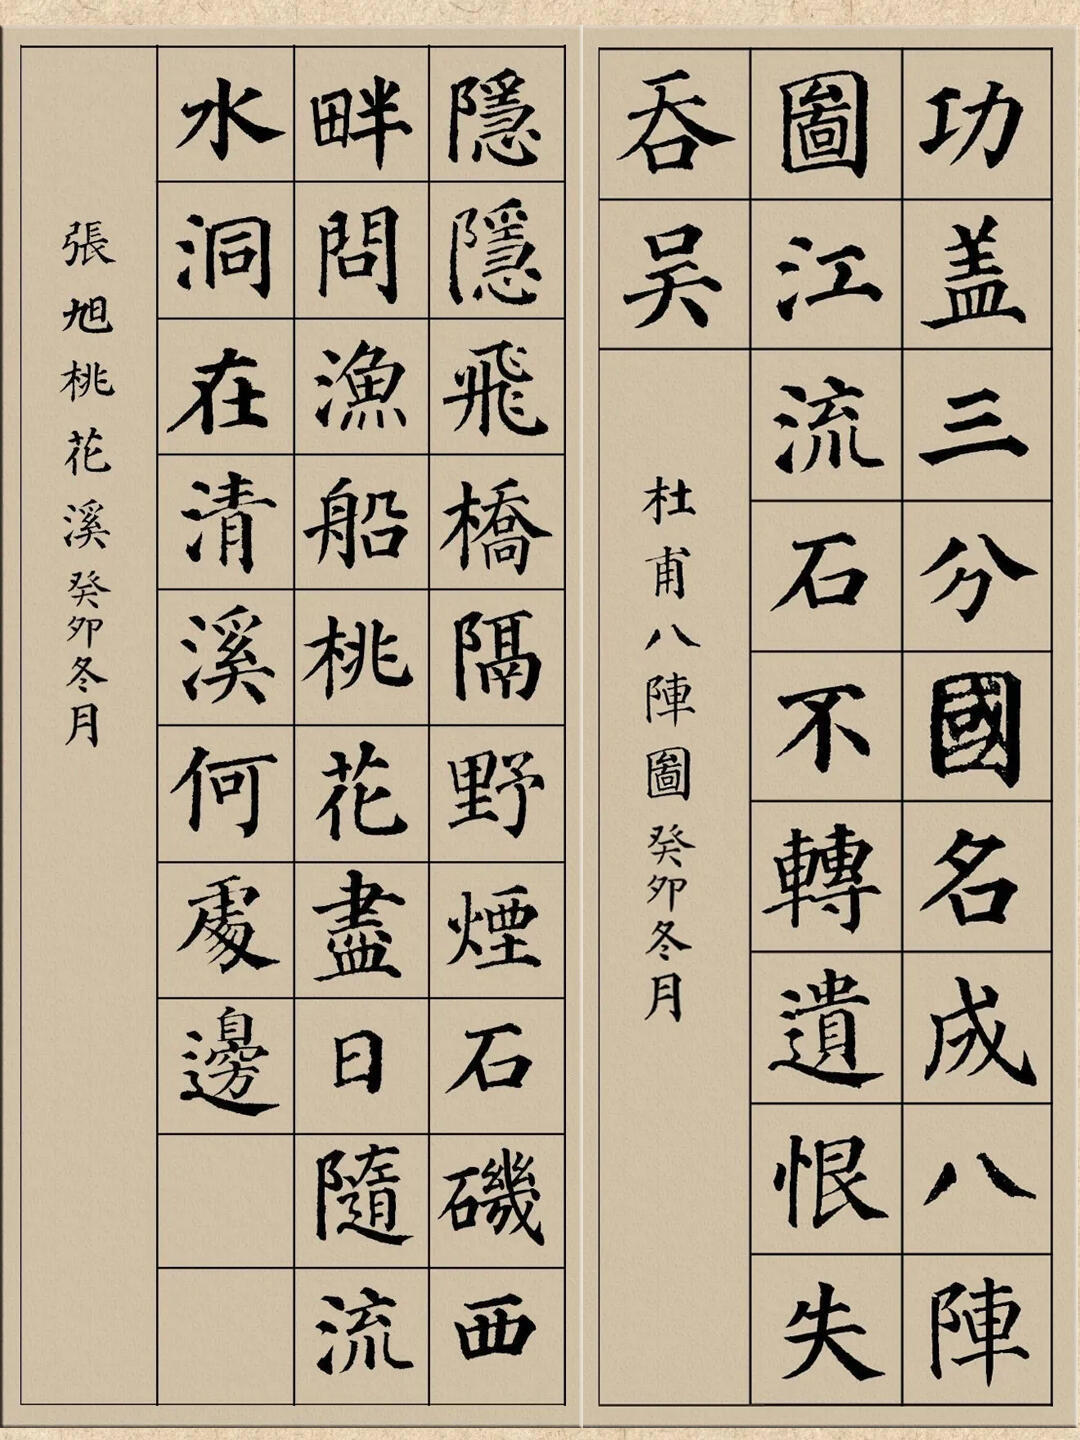 功盖三分國名成八陣
圖江流石不轉遺恨失
吞吴
杜甫八陣圖癸卯冬月
隱隱飛橋隔野煙石磯西
畔問漁船桃花盡日隨流
水洞在清溪何處邊
張旭桃花溪癸卯冬月